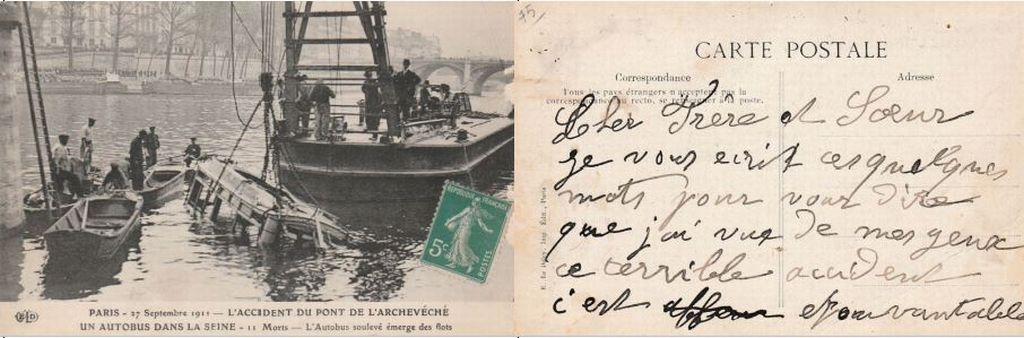 RÉPUBLIQUE FRANÇAISE
5c
POSTES
ELD
PARIS - 27 Septembre 1911 - L'ACCIDENT DU PONT DE L'ARCHEVÊCHÉ
UN AUTOBUS DANS LA SEINE - 11 Morts - L'Autobus soulevé émerge des flots
75
CARTE POSTALE
Correspondance
Adresse
Tous les pays étrangers n'acceptent pas la
correspondance au recto, se renseigner à la poste.
Cher Frère et Sœur
je vous ecrit ces quelques
mots pour vour dire
que j'ai vue de mes yeux
ce terrible accident
c'est epouvantable